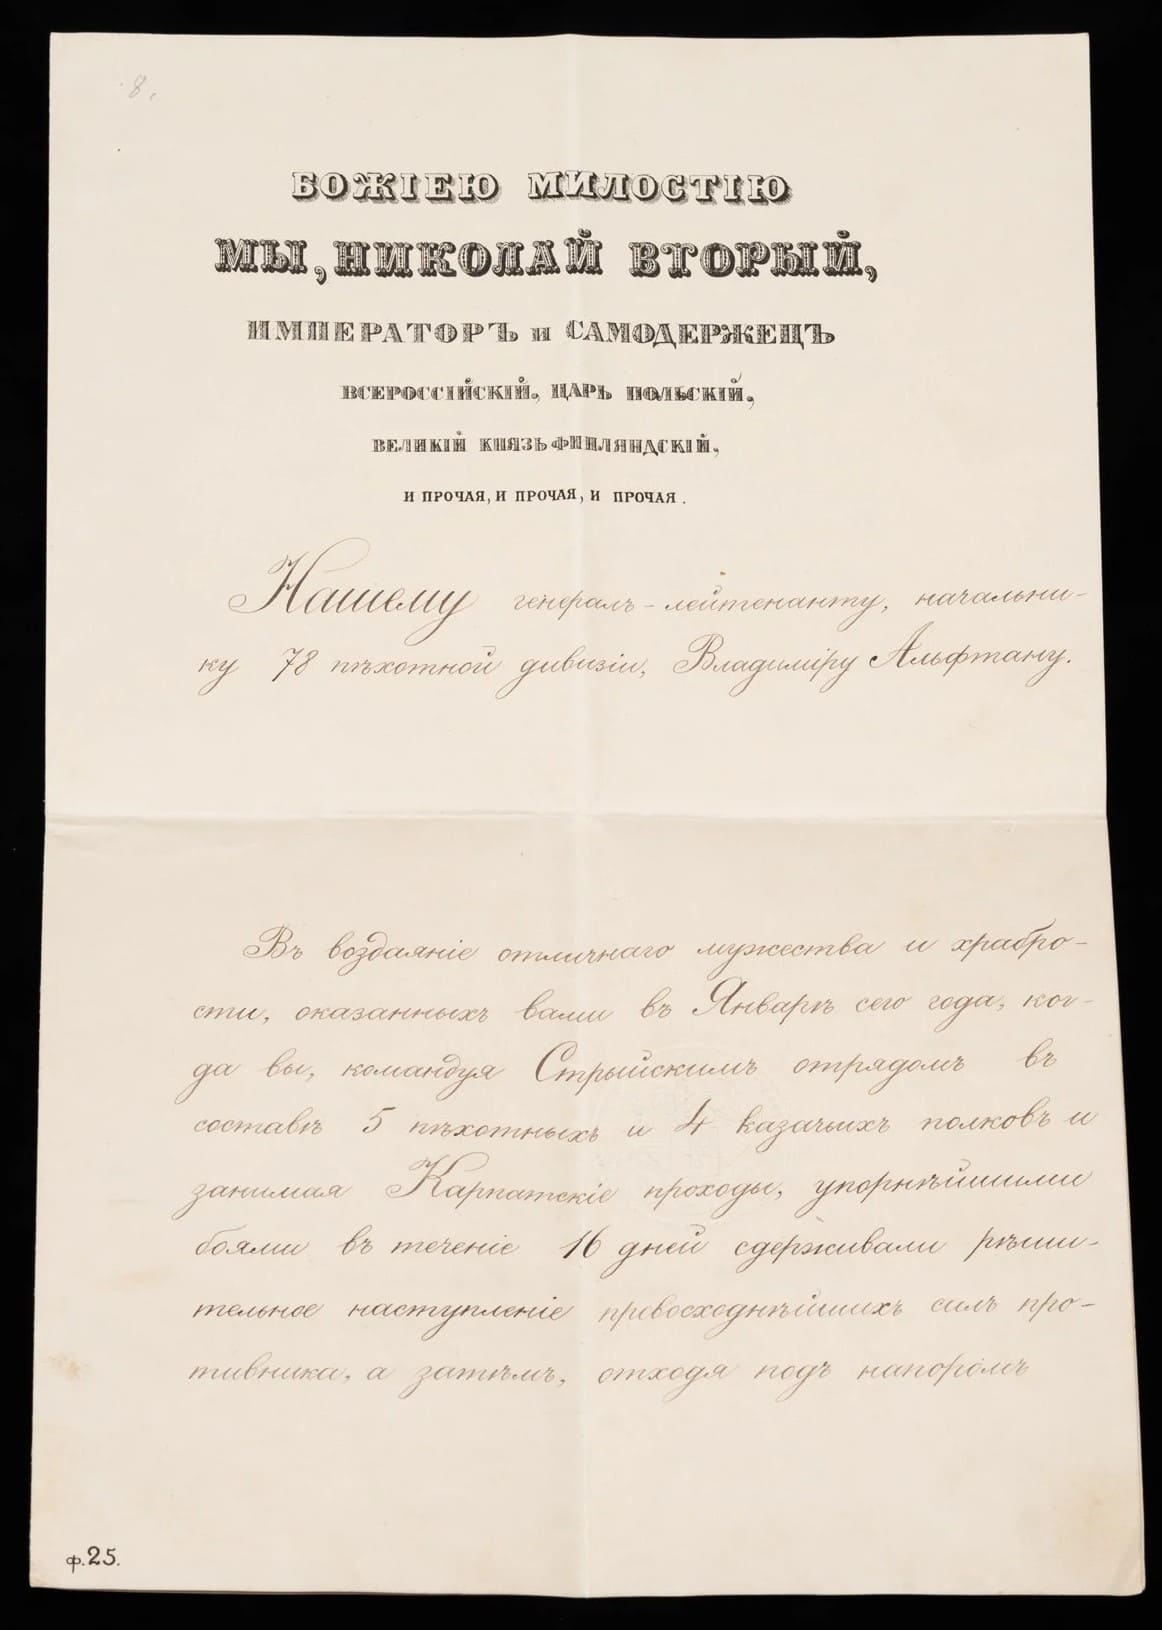 8.
БОЖІЕЮ МИЛОСТІЮ
МЫ, НИКОЛАЙ ВТОРЫЙ,
ИМПЕРАТОРЪ и САМОДЕРЖЕЦЪ
ВСЕРОССІЙСКІЙ, ЦАРЬ ПОЛЬСКІЙ,
ВЕЛИКІЙ КНЯЗЬ ФИНЛЯНДСКІЙ,
И ПРОЧАЯ, И ПРОЧАЯ, И ПРОЧАЯ.
Нашему генералъ-лейтенанту, начальни-
ку 78 пѣхотной дивизіи, Владиміру Альфтану.
Въ воздаяніе отличнаго мужества и храбро-
сти, оказанныхъ вами въ Январѣ сего года, ког-
да вы, командуя Стрыйскимъ отрядомъ въ
составѣ 5 пѣхотныхъ и 4 казачьихъ полковъ и
занимая Карпатскіе проходы, упорнѣйшими
боями въ теченіе 16 дней сдерживали рѣши-
тельное наступленіе превосходнѣйшихъ силъ про-
тивника, а затѣмъ, отходя подъ напоромъ
ф.25.